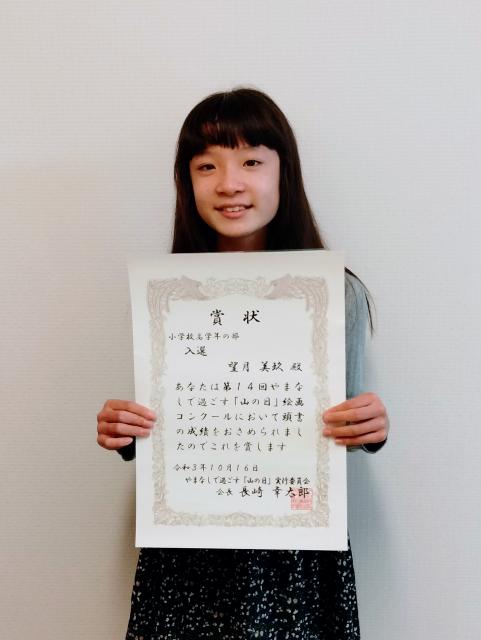 賞状
小学校高学年の部
入選
望月 美玖 殿
あなたは第14回やまな
しで過ごす「山の日」絵画
コンクールにおいて頭書
の成績をおさめられまし
たのでこれを賞します
令和3年10月16日
やまなしで過ごす「山の日」実行委員会
会長 長崎 幸太郎